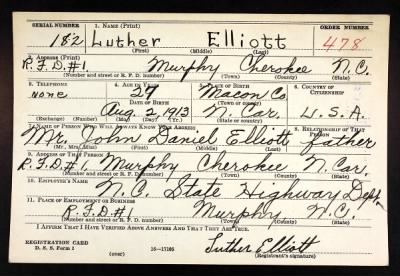 SERIAL NUMBER 1. NAME (Print) ORDER NUMBER
182 Luther Elliott 478
(First) (Middle) (Last)
2. ADDRESS (Print)
R.F.D.#1. Murphy Cherokee N.C.
(Number and street or R. F. D. number) (Town) (County) (State)
3. TELEPHONE 4. AGE IN YEARS 5. PLACE OF BIRTH 6. COUNTRY OF CITIZENSHIP
none 27 Macon Co.
DATE OF BIRTH (Town or county)
Aug. 2, 1913 N. Car. U.S.A.
(Exchange) (Number) (Mo.) (Day) (Yr.) (State or country)
7. NAME OF PERSON WHO WILL ALWAYS KNOW YOUR ADDRESS 8. RELATIONSHIP OF THAT PERSON
Mr. John Daniel Elliott father
(Mr., Mrs., Miss) (First) (Middle) (Last)
9. ADDRESS OF THAT PERSON
R.F.D.#1 Murphy Cherokee N. Car.
(Number and street or R. F. D. number) (Town) (County) (State)
10. EMPLOYER'S NAME
N.C. State Highway Dept.
11. PLACE OF EMPLOYMENT OR BUSINESS
R.F.D.#1 Murphy N.C.
(Number and street or R. F. D. number) (Town) (County) (State)
I AFFIRM THAT I HAVE VERIFIED ABOVE ANSWERS AND THAT THEY ARE TRUE.
REGISTRATION CARD
D. S. S. Form 1 16—17105 Luther Elliott
(over) (Registrant's signature)